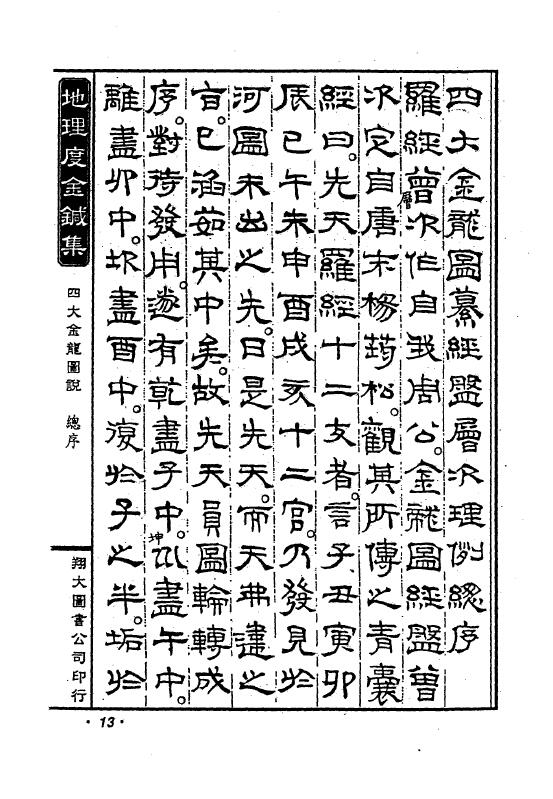 四大金龍圖纂經盤層次理例總序
羅經曾次作自我周公。金龍圖經盤曾
層
次定自唐末楊筠松。觀其所傳之青囊
經曰。先天羅經十二支者。言子丑寅卯
辰巳午未申酉戌亥十二宮。乃發見於
河圖未出之先。曰是先天。而天弗違之
旨。已涵茹其中矣。故先天員圖輪轉成
序。對待發用。遂有乾盡子中。巛盡午中。
坤
離盡卯中。坎盡酉中。復於子之半。垢於
地理度金鍼集
四大金龍圖說 總序
翔大圖書公司印行
·13·